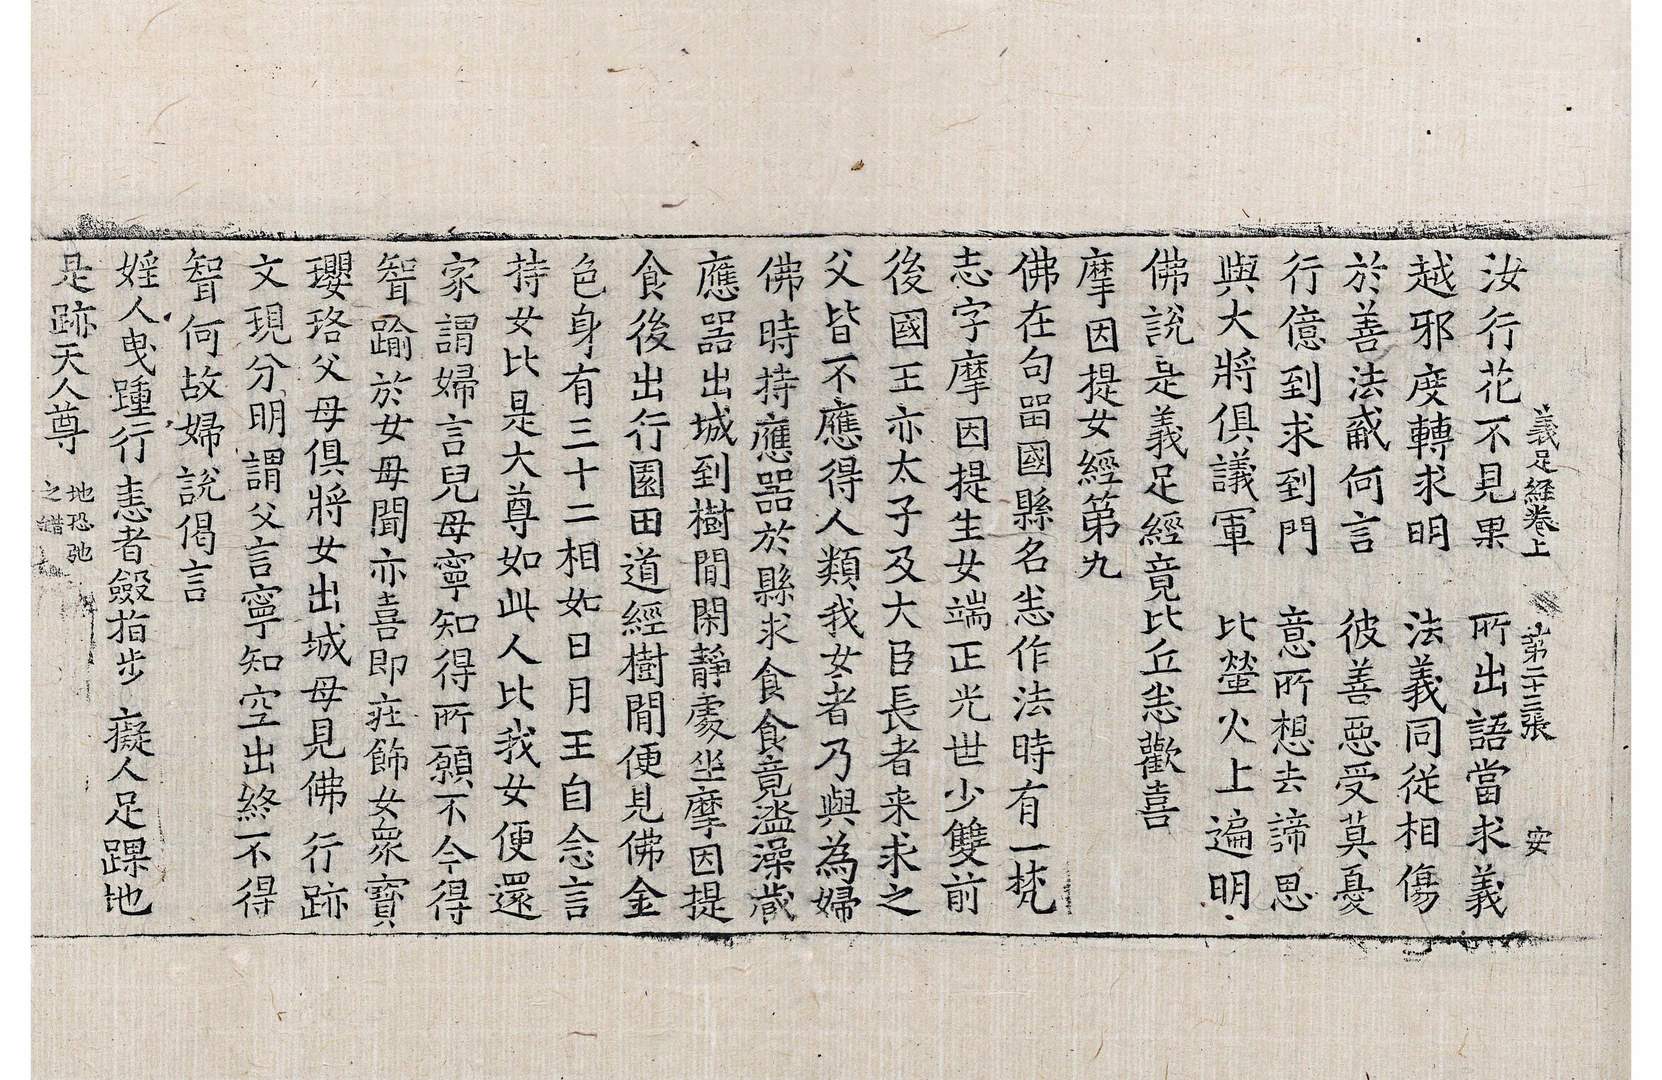 義足經卷上 第二十三張 安
汝行花不見果 所出語當求義
越邪度轉求明 法義同從相傷
於善法戒何言 彼善惡受莫憂
行億到求到門 意所想去諦思
與大將俱議軍 比螢火上遍明
佛說是義足經竟比丘悉歡喜
摩因提女經第九
佛在句留國縣名悉作法時有一梵
志字摩因提生女端正光世少雙前
後國王亦太子及大臣長者来求之
父皆不應得人類我女者乃與為婦
佛時持應器於縣求食食竟盪澡藏
應器出城到樹間閑靜處坐摩因提
食後出行園田道經樹間便見佛金
色身有三十二相如日月王自念言
持女比是大尊如此人比我女便還
家謂婦言兒母寧知得所願不今得
聟踰於女母聞亦喜即莊飾女衆寶
瓔珞父母俱將女出城母見佛行跡
文現分明謂父言寧知空出終不得
聟何故婦說偈言
婬人曳踵行 恚者斂指步 癡人足踝地
是跡天人尊 地恐弛
之錯